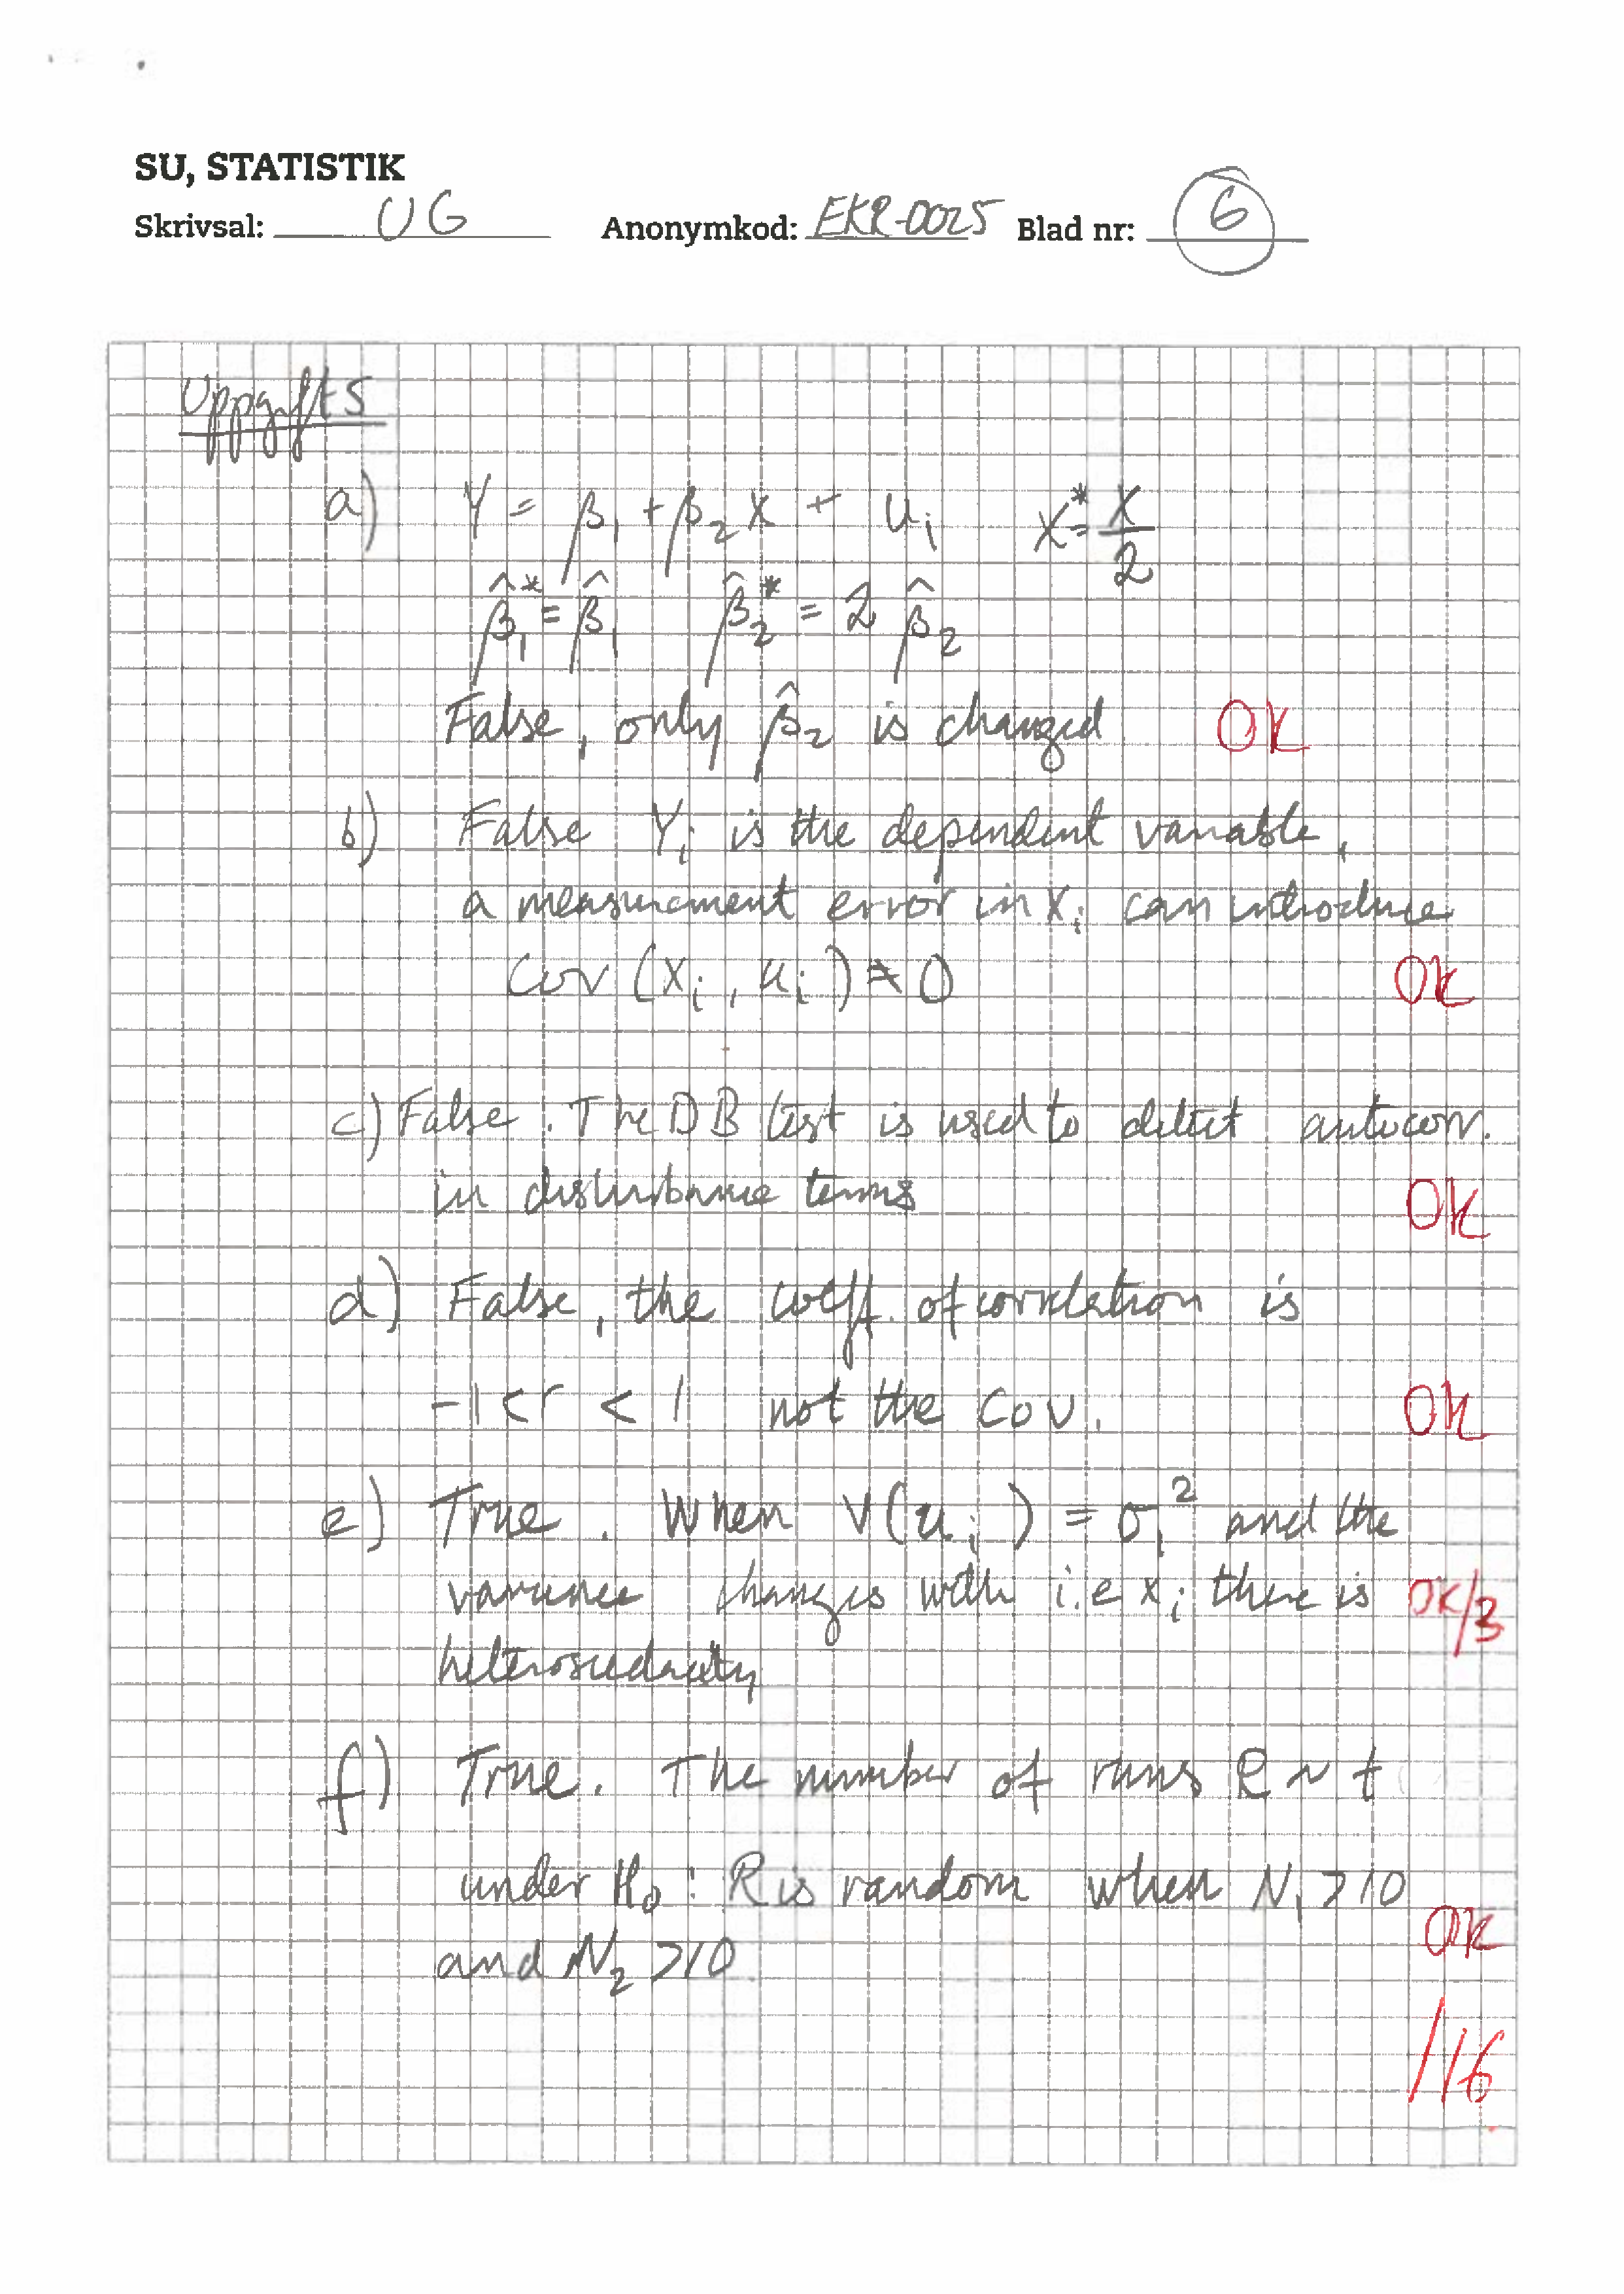 SU, STATISTIK
Skrivsal: UG Anonymkod: EKR-0025 Blad nr: 6
Uppgift 5
a) Y = β₁ + β₂ X + uᵢ X* = X/2
β̂₁* = β̂₁ β̂₂* = 2 β̂₂
False, only β̂₂ is changed OK
b) False Yᵢ is the dependent variable,
a measurement error in Xᵢ can introduce
Cov (Xᵢ, uᵢ) ≠ 0 OK
c) False. The DB test is used to detect autocorr.
in disturbance terms OK
d) False, the coeff. of correlation is
-1 < r < 1 not the COV. OK
e) True. When V(uᵢ) = σᵢ² and the
variance changes with i.e xᵢ there is OK/3
heteroscedacity
f) True. The number of runs R ~ t
under H₀: R is random when N₁ > 10
and N₂ > 10 OK
/16